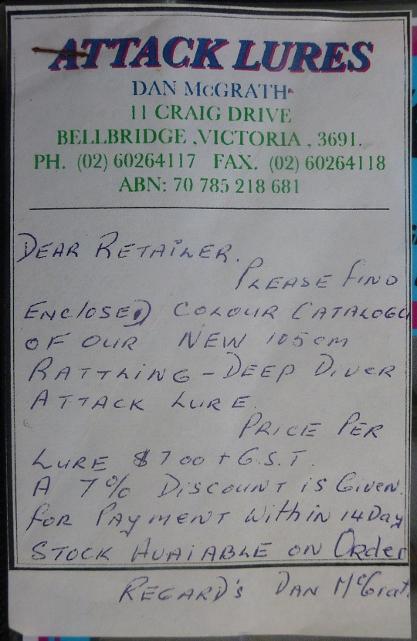 ATTACK LURES
DAN McGRATH
11 CRAIG DRIVE
BELLBRIDGE ,VICTORIA , 3691.
PH. (02) 60264117 FAX. (02) 60264118
ABN: 70 785 218 681
DEAR RETAILER.
PLEASE FIND
ENCLOSED COLOUR CATALOGU
OF OUR NEW 105cm
RATTLING - DEEP DIVER
ATTACK LURE.
PRICE PER
LURE $7 00 + G.S.T.
A 7% DISCOUNT IS GIVEN.
FOR PAYMENT WITHIN 14 DAY
STOCK AVAIABLE ON ORDER
REGARD'S DAN McGrat